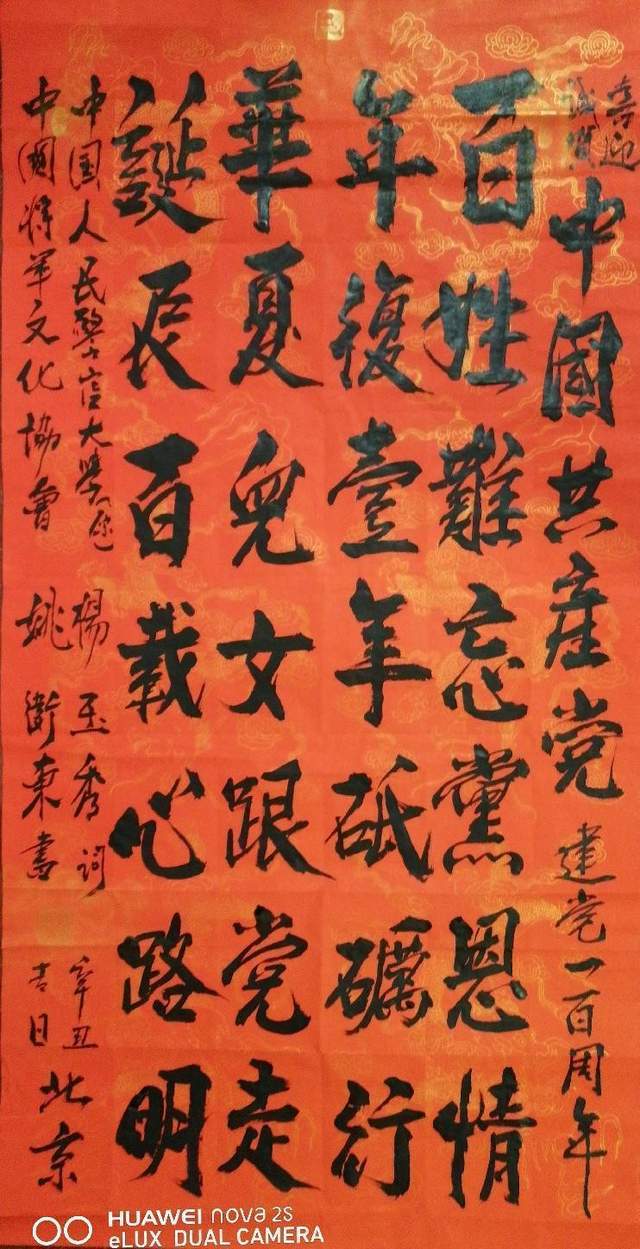 喜迎
诚贺
中國共産党 建党一百周年
百姓難忘黨恩情
年復壹年砥礪行
華夏兒女跟党走
誕辰百載心路明
中国人民警官大學 楊玉秀词
中國将军文化協會 姚衛東書
辛丑
吉日
北京
HUAWEI nova 2S
eLUX DUAL CAMERA